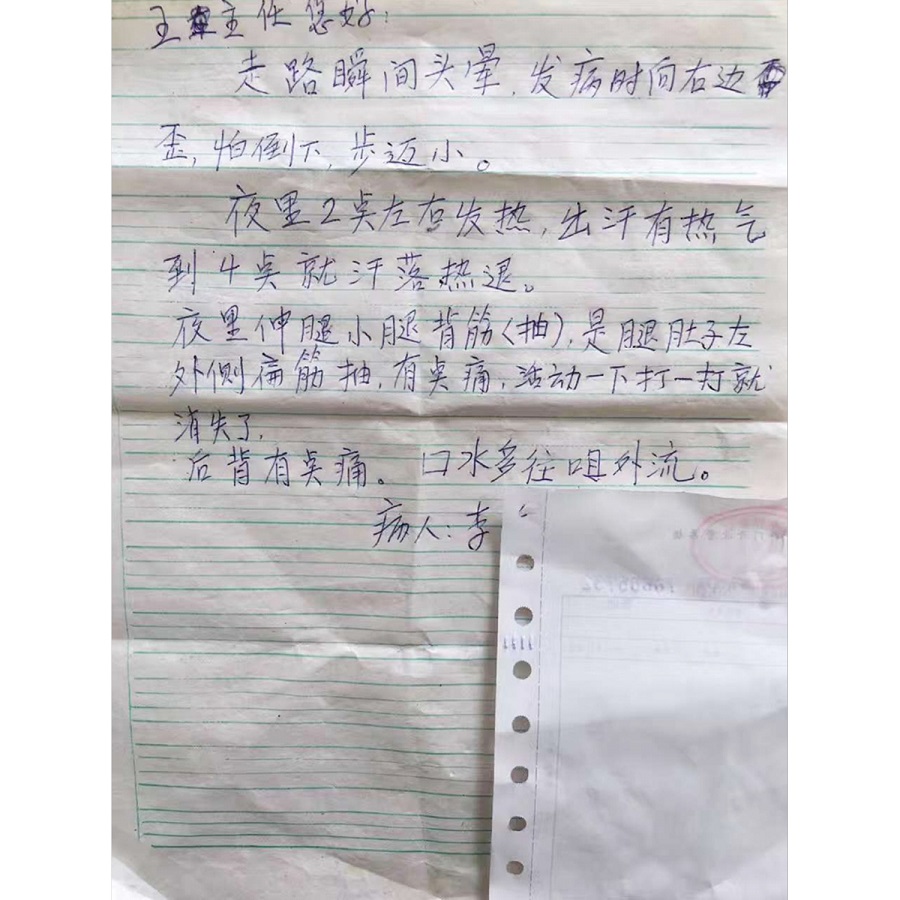 王主任您好:
走路瞬间头晕,发病时向右边
歪,怕倒下,步迈小。
夜里2点左右发热,出汗有热气
到4点就汗落热退。
夜里伸腿小腿背筋(抽),是腿肚子左
外侧筋抽,有点痛,活动一下打一打就
消失了,
后背有点痛。 口水多往咀外流。
病人:李